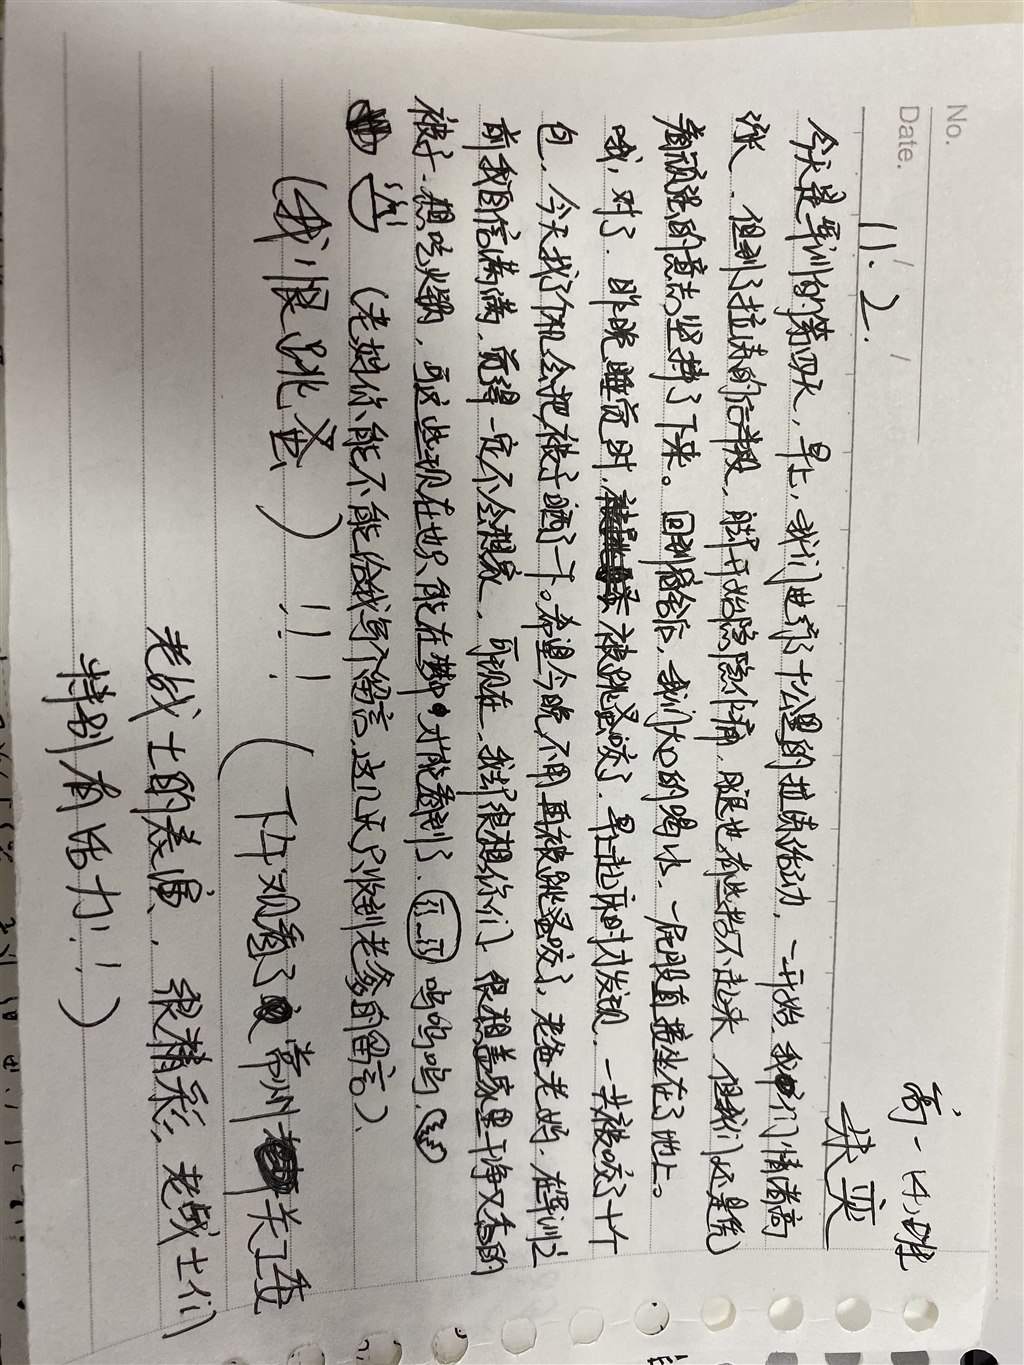 No.
Date.
高一(4)班
11.2.
今天是军训的第四天，早上，我们进行了十公里的拉练活动，一开始，我们情绪高
涨，但到了拉练的后半段，脚开始隐隐作痛，腿也有些抬不起来，但我们还是凭
着顽强的意志坚持了下来。回到宿舍后，我们大口的喝水，一屁股直接坐在了地上。
哦，对了，昨晚睡觉时，被跳蚤咬了，早上起床时才发现，一共被咬了十个
包，今天找了个机会把被子晒了一下。希望今晚不用再被跳蚤咬了，老爸老妈，在军训之
前我自信满满，觉得一定不会想家，可现在，我却很想你们，很想盖家里干净又香的
被子，想吃火锅，可这些现在也只能在梦中才能看到了。呜呜呜
(老妈你能不能给我写个留言，这几天只收到老爹的留言)
(我恨跳蚤)!!! (下午观看了常州关工委
老战士的表演，很精彩，老战士们
特别有活力!!)